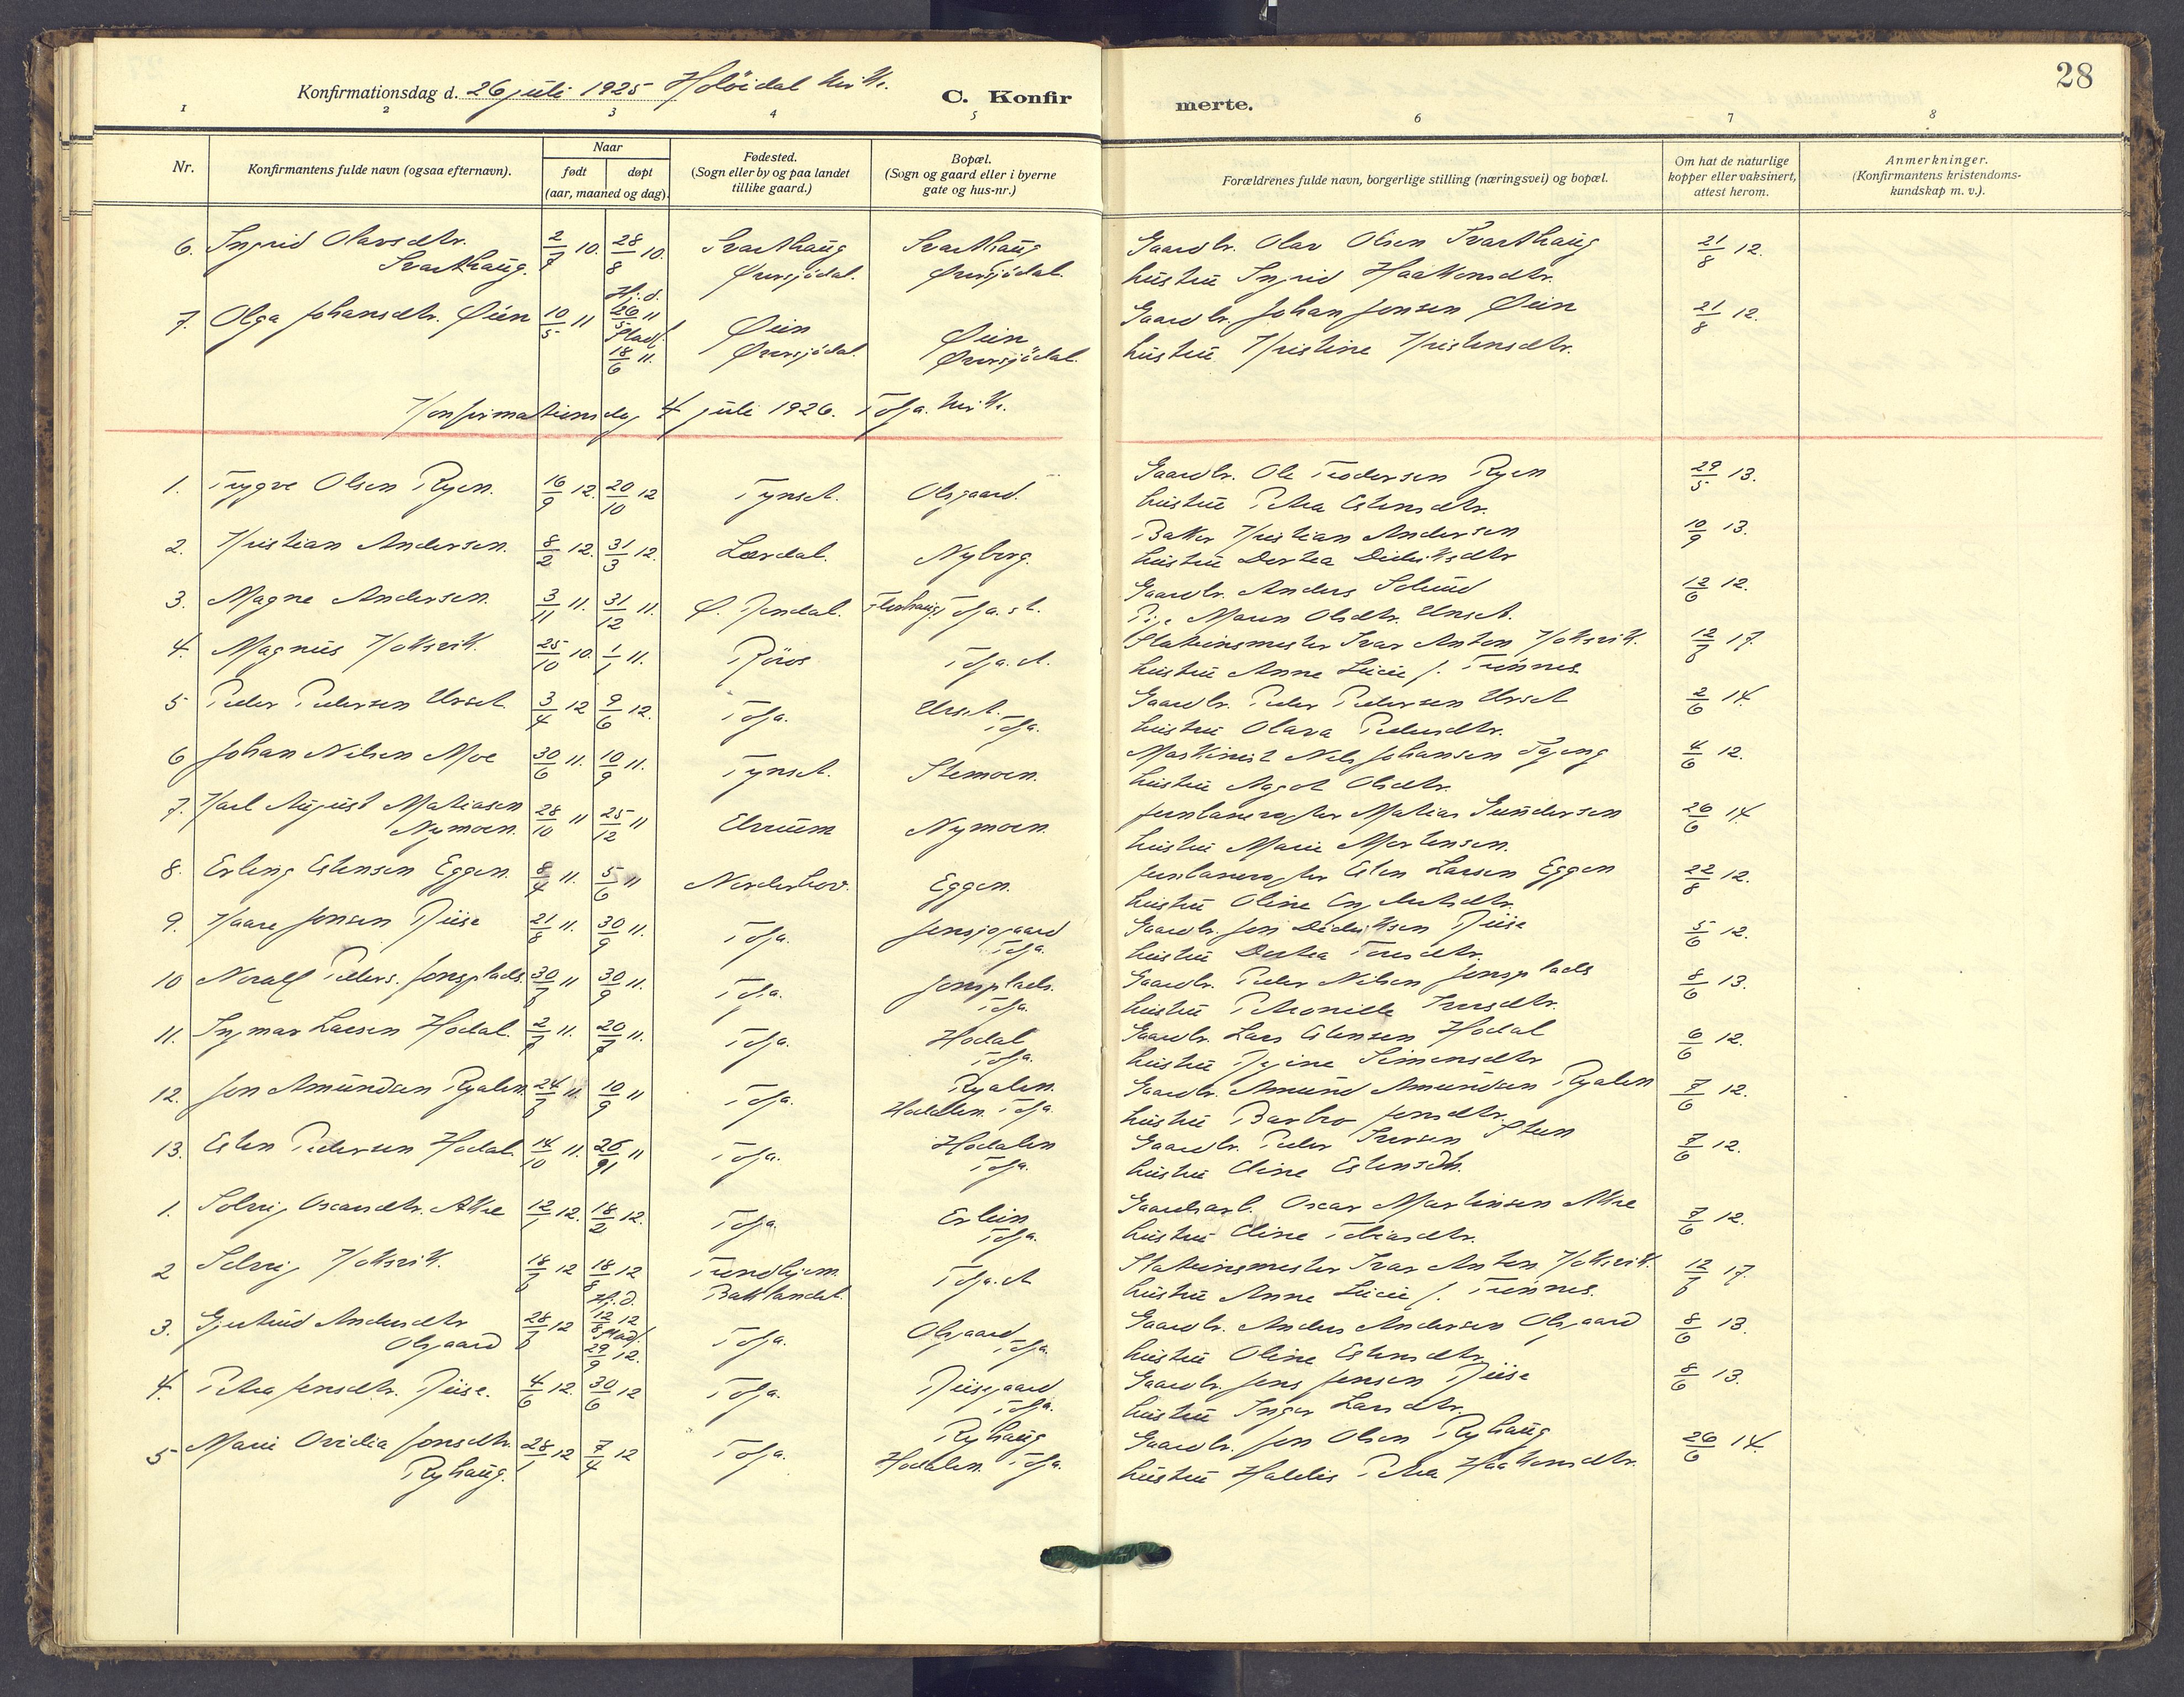 28
Konfirmationsdag d. 26 juli 1925 Holöidal kirke.
C. Konfirmerte.
1 2 3 4 5 6 7 8
Nr.
Konfirmantens fulde navn (ogsaa efternavn).
Naar
født døpt
(aar, maaned og dag).
Fødested.
(Sogn eller by og paa landet
tillike gaard.)
Bopæl.
(Sogn og gaard eller i byerne
gate og hus-nr.)
Forældrenes fulde navn, borgerlige stilling (næringsvei) og bopæl.
Om hat de naturlige
kopper eller vaksinert,
attest herom.
Anmerkninger.
(Konfirmantens kristendoms-
kundskap m. v.).
6. Ingrid Olavsdtr. 2/7 10. 28/8 10. Svarthaug Svarthaug Gaardbr. Olav Olsen Svarthaug 21/8 12.
Svarthaug. Øversjödal. Øversjödal. hustru Ingrid Haakensdtr.
7. Olga Johansdtr. Øien 10/5 11 Hj. d. 26/5 11 Øien Øien Gaardbr. Johan Jonsen Øien 21/8 12.
Stadf. 18/6 11. Øversjödal. Øversjödal. hustru Kristine Kristensdtr.
Konfirmationsdag 4 juli 1926. Tolga kirke.
1. Trygve Olsen Ryen. 16/9 12. 20/10 12 Tynset. Olsgaard. Gaardbr. Ole Trodersen Ryen 29/5 13.
hustru Petra Estensdtr.
2. Kristian Andersen. 8/2 12. 31/3 12. Lærdal. Nyborg. Baker Kristian Andersen 10/9 13.
hustru Dortea Didriksdtr
3. Magne Andersen. 3/11 11. 31/12 11. Ø. Rendal. Tolga st. Gaardbr. Anders Solund 12/6 12.
Pige Maren Olsdtr. Unset.
4. Magnus Koksvik. 25/10 10. 1/1 11. Röros Tolga st. Stationsmester Ivar Anton Koksvik. 12/8 17.
hustru Anne Lucie f. Trönnes.
5 Peder Pedersen Urset 3/4 12 9/6 12. Tolga. Urset. Gaardbr. Peder Pedersen Urset 2/6 14.
Tolga. hustru Olava Pedersdtr.
6 Johan Nilsen Moe 30/6 11. 10/9 11. Tynset. Stemoen. Maskinist Nils Johansen 4/6 12.
hustru Agot Olsdtr.
7. Karl August Matiasen 28/10 11 25/12 11 Elverum Nymoen. Jernbanevogter Matias Gundersen 26/6 14.
Nymoen. hustru Marie Mortensen.
8. Erling Estensen Eggen. 8/4 11. 5/6 11 Norderhov. Eggen. Jernbanevogter Esten Larsen Eggen 22/8 12.
hustru Oline Engebretsdtr.
9. Kaare Jonsen Riise 21/8 11. 30/9 11. Tolga. Jensjogaard Gaardbr. Jon Didriksen Riise 5/6 12.
Tolga. hustru Dortea Toresdtr.
10 Noralf Peders. Jonsplads. 30/7 11 30/9 11. Tolga. Jonsplads. Gaardbr. Peder Nilsen Jonsplads 8/6 13.
Tolga. hustru Petronille Iversdtr.
11. Ingmar Larsen Hodal. 2/7 11. 20/8 11. Tolga. Hodal Gaardbr. Lars Estensen Hodal 6/6 12.
Tolga. hustru Regine Simensdtr
12. Jon Amundsen Ryalen. 24/7 11. 10/9 11 Tolga. Ryalen. Gaardbr. Amund Amundsen Ryalen 7/6 12.
Hodalen. Tolga. hustru Barbro Jonsdtr.
13. Esten Pedersen Hodal. 14/10 11. 26/11 11 Tolga. Hodalen Gaardbr. Peder Iversen Steen 7/6 12.
Tolga. hustru Oline Estensdtr.
1. Solveig Oscarsdtr. Akre 12/1 12. 18/2 12. Tolga. Erlien Gaardarb. Oscar Martinsen Akre 7/6 12.
Tolga. hustru Oline Tobiasdtr.
2 Solveig Koksvik. 18/7 12 18/8 12 Trondhjem. Tolga st. Stationsmester Ivar Anton Koksvik. 12/8 17.
Baklandet. hustru Anne Lucie f. Trönnes.
3. Gjertrud Andersdtr 28/7 12 Hj. d. 12/8 12 Tolga. Olsgaard Gaardbr. Anders Andersen Olsgaard 8/6 13.
Olsgaard Stadf. 29/9 12. Tolga. hustru Oline Estensdtr.
4. Petra Jensdtr. Riise. 4/6 12. 30/6 12 Tolga. Riisegaard Gaardbr. Jens Jensen Riise 8/6 13.
Tolga. hustru Inger Larsdtr.
5 Marie Ovidia Jonsdtr. 28/1 12 7/4 12 Tolga. Ryhaug Gaardbr. Jon Olsen Ryhaug 26/6 14.
Ryhaug. Hodalen. Tolga. hustru Haldis Petra Haakensdtr.